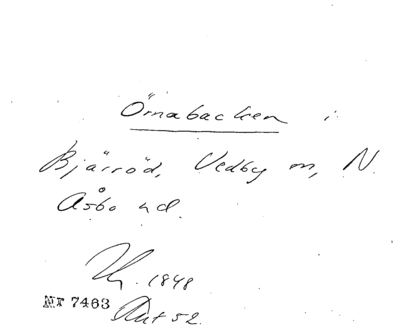 Örnabacken i
Bjärröd, Vedby sn, N.
Åsbo hd.
1848
Nr 7463 Akt 52.